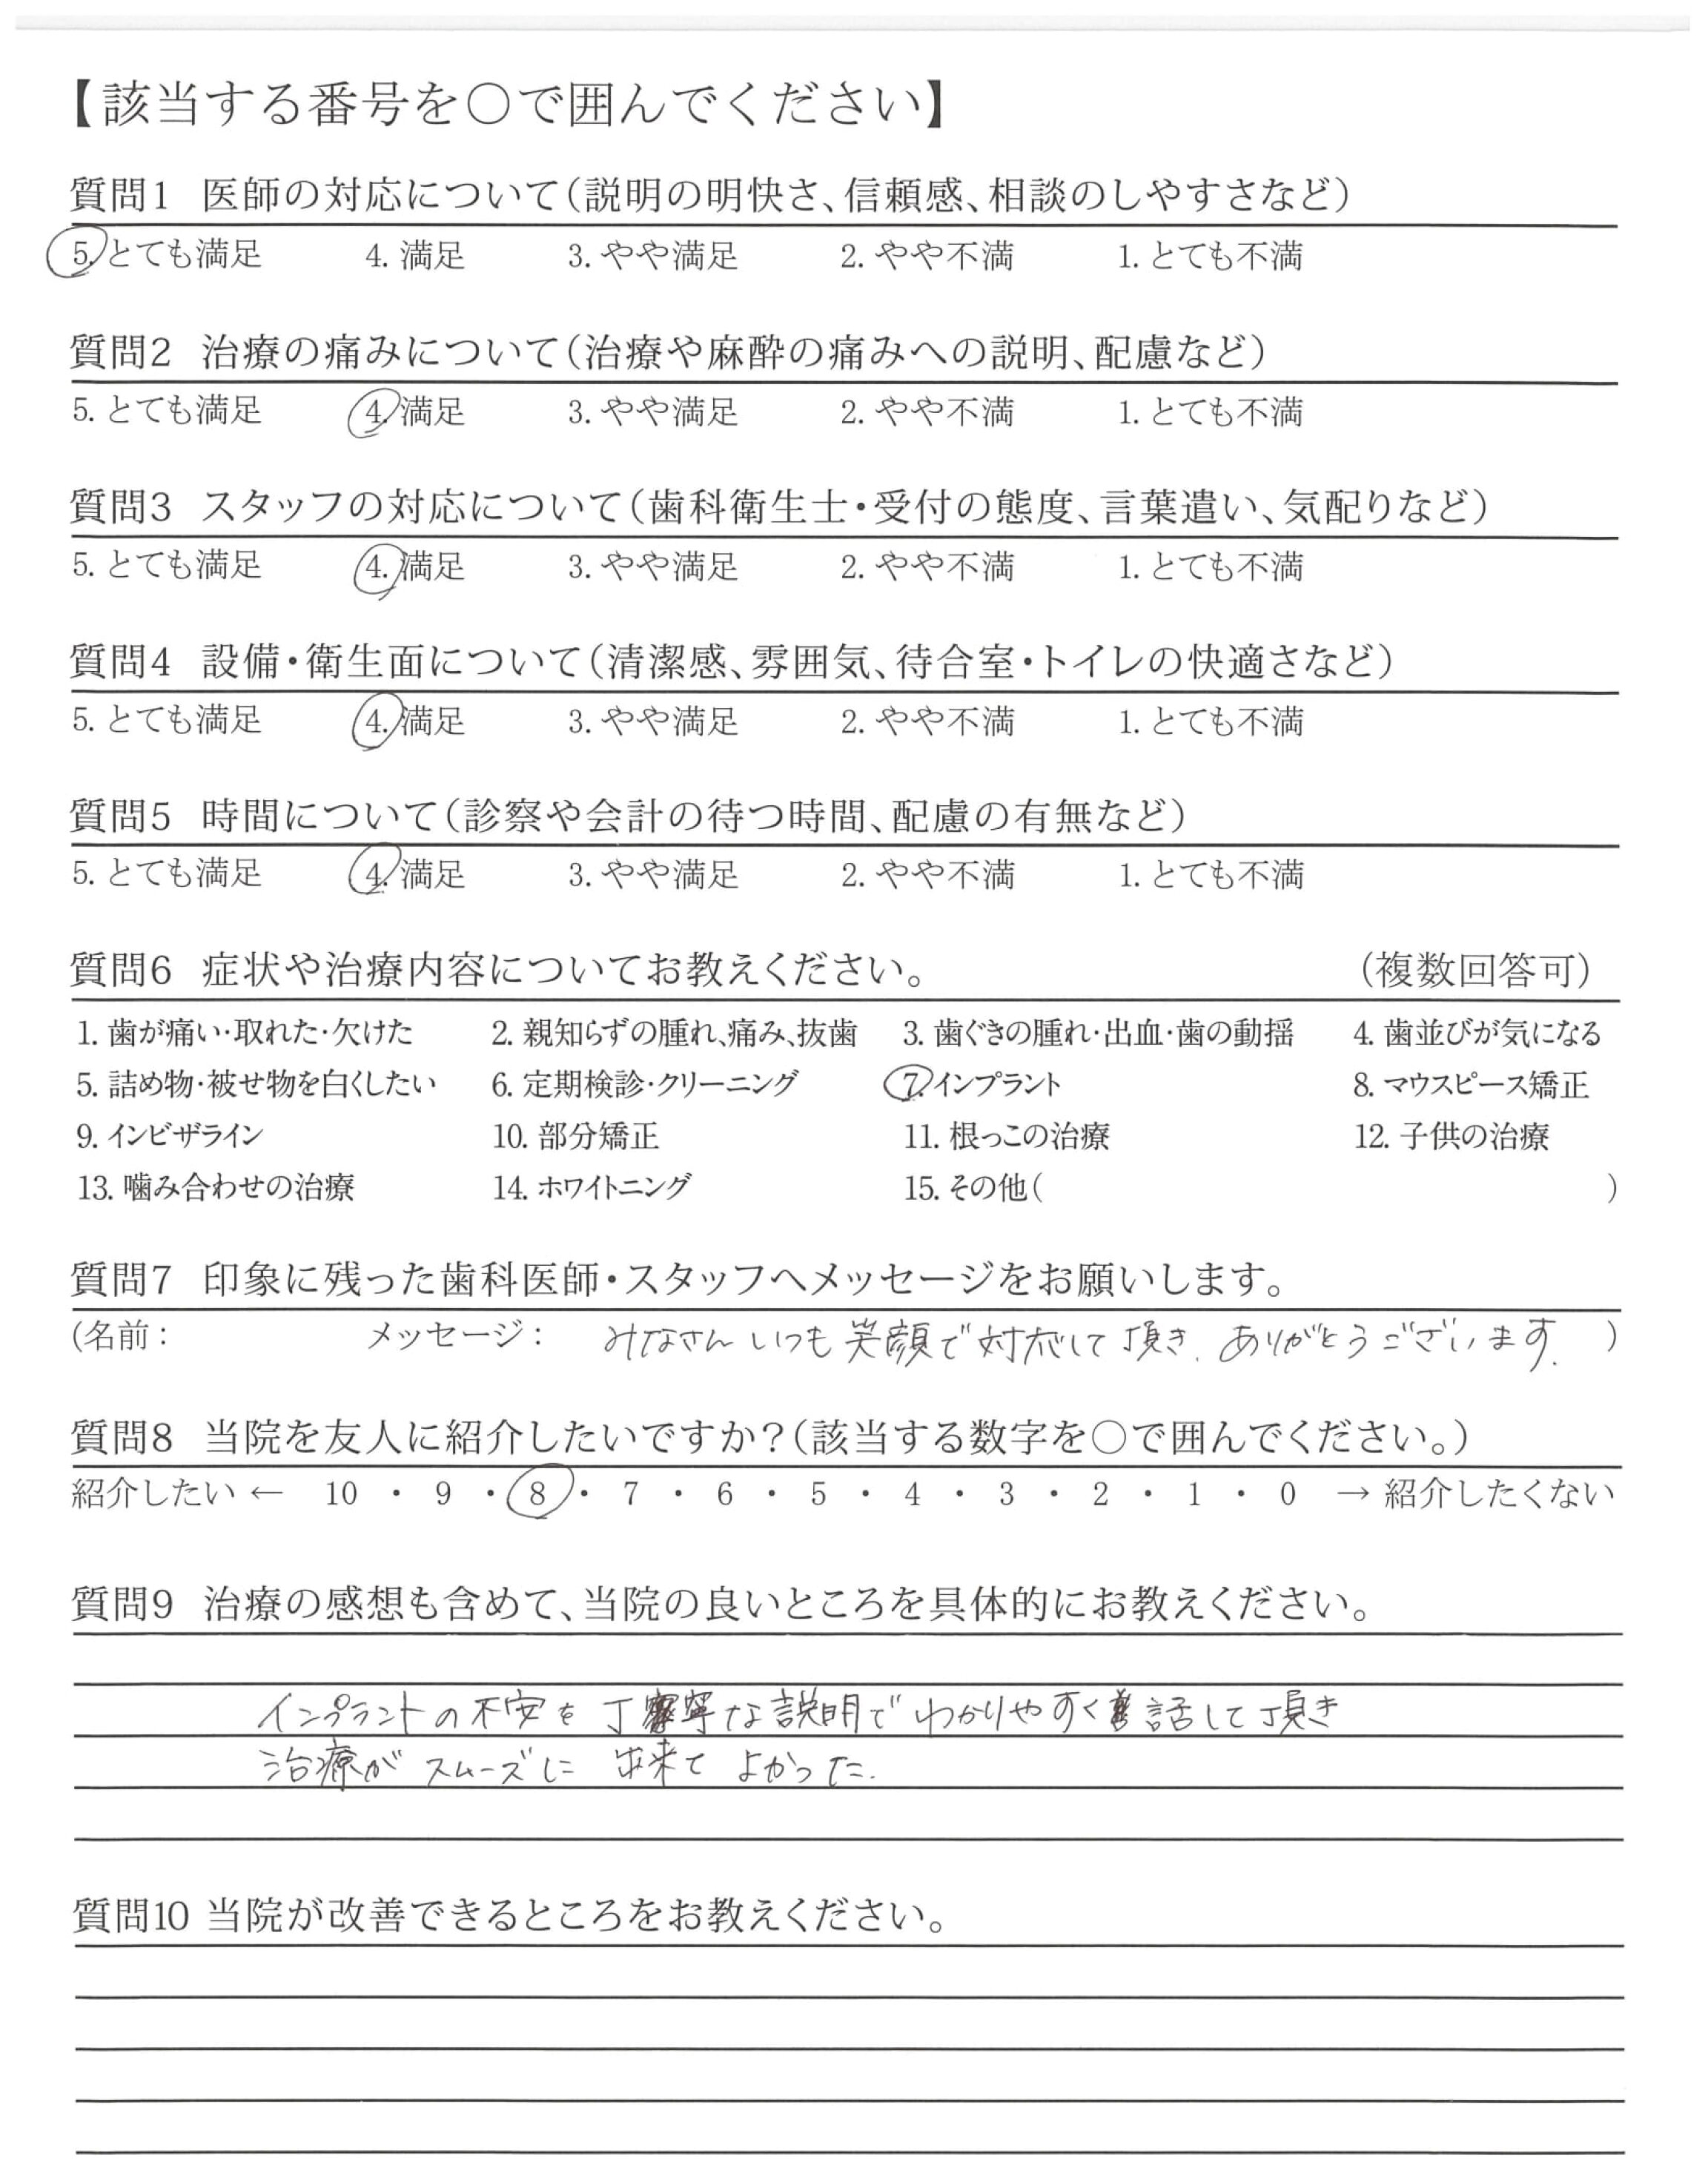 【該当する番号を○で囲んでください】
質問1 医師の対応について(説明の明快さ、信頼感、相談のしやすさなど)
5. とても満足 4. 満足 3. やや満足 2. やや不満 1. とても不満
質問2 治療の痛みについて(治療や麻酔の痛みへの説明、配慮など)
5. とても満足 4. 満足 3. やや満足 2. やや不満 1. とても不満
質問3 スタッフの対応について(歯科衛生士・受付の態度、言葉遣い、気配りなど)
5. とても満足 4. 満足 3. やや満足 2. やや不満 1. とても不満
質問4 設備・衛生面について(清潔感、雰囲気、待合室・トイレの快適さなど)
5. とても満足 4. 満足 3. やや満足 2. やや不満 1. とても不満
質問5 時間について(診察や会計の待つ時間、配慮の有無など)
5. とても満足 4. 満足 3. やや満足 2. やや不満 1. とても不満
質問6 症状や治療内容についてお教えください。 (複数回答可)
1. 歯が痛い・取れた・欠けた 2. 親知らずの腫れ、痛み、抜歯 3. 歯ぐきの腫れ・出血・歯の動揺 4. 歯並びが気になる
5. 詰め物・被せ物を白くしたい 6. 定期検診・クリーニング 7. インプラント 8. マウスピース矯正
9. インビザライン 10. 部分矯正 11. 根っこの治療 12. 子供の治療
13. 噛み合わせの治療 14. ホワイトニング 15. その他( )
質問7 印象に残った歯科医師・スタッフへメッセージをお願いします。
(名前: メッセージ: みなさん いつも 笑顔で 対応して 頂き、ありがとうございます. )
質問8 当院を友人に紹介したいですか?(該当する数字を○で囲んでください。)
紹介したい ← 10 ・ 9 ・ 8 ・ 7 ・ 6 ・ 5 ・ 4 ・ 3 ・ 2 ・ 1 ・ 0 → 紹介したくない
質問9 治療の感想も含めて、当院の良いところを具体的にお教えください。
インプラントの不安を 丁寧な説明で わかりやすく 話して頂き
治療が スムーズに 出来て よかった.
質問10 当院が改善できるところをお教えください。